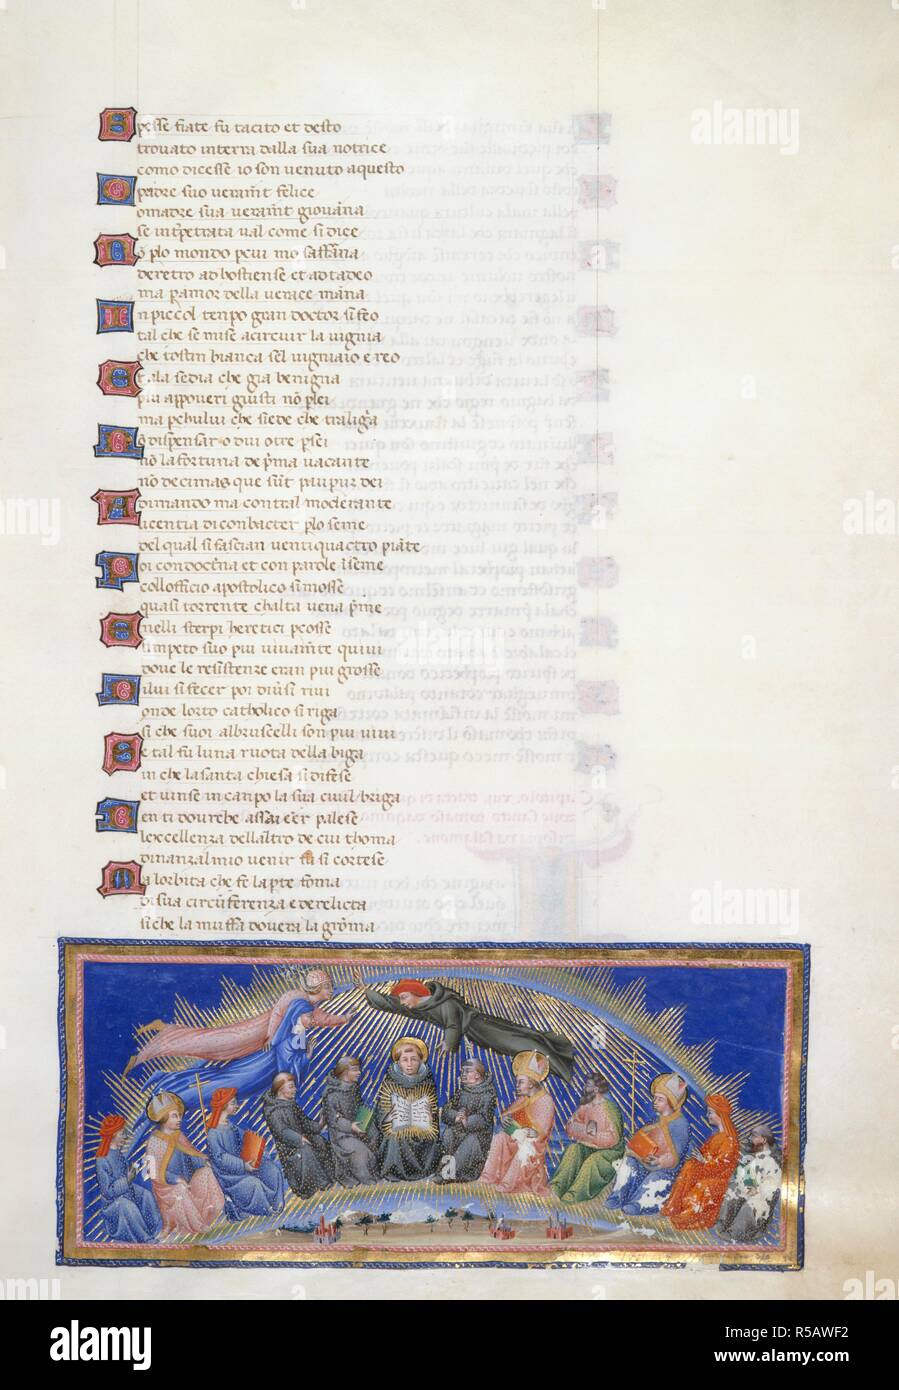 Spesse fiate fu tacito et desto
trovato interra dalla sua notrice
como dicesse io son venuto aquesto
O padre suo veramēt felice
omadre sua veramēt giovāna
se intr̄petrata val come si dice
Nō plo mondo pcui mo saffāna
deretro ad hostiense et ad tadeo
ma pamor della verace māna
In piccol tenpo gran doctor si feo
tal che se mise acircuir la vignia
che tostin bianca sel vigniaio e reo
Et ala sedia che gia benigna
piu appoveri giusti nō plei
ma pchului che siede che traligna
Nō dispensar o dui otre psei
nō la fortuna de p̄ma vacante
nō decimas que sūt paupuz dei
Adimando ma contral mode rante
licentia di conbacter plo seme
del qual si fascian ventiquactro piāte
Poi con doctrīa et con parole iseme
collofficio apostolico si mosse
quasi torrente chalta vena p̄me
Enelli sterpi heretici pcosse
limpeto suo piu vivamēte quivi
dove le resistenze eran piu grosse
Di lui si fecer poi diūsi rivi
onde lorto catholico si riga
si che suoi albruscelli son piu vivi
Se tal fu luna ruota della biga
in che la santa chiesa si difese
et vinse in canpo la sua civil briga
Ben ti dovrebe assai eēr palese
lexcellenza dellaltro de cui thoma
dinanzal mio venir fu si cortese
Ma lorbita che fe la pte sōma
di sua circūferenza e derelicta
si che la muffa dovera la grōma
alamy
alamy
Image ID: R5AWF2
www.alamy.com